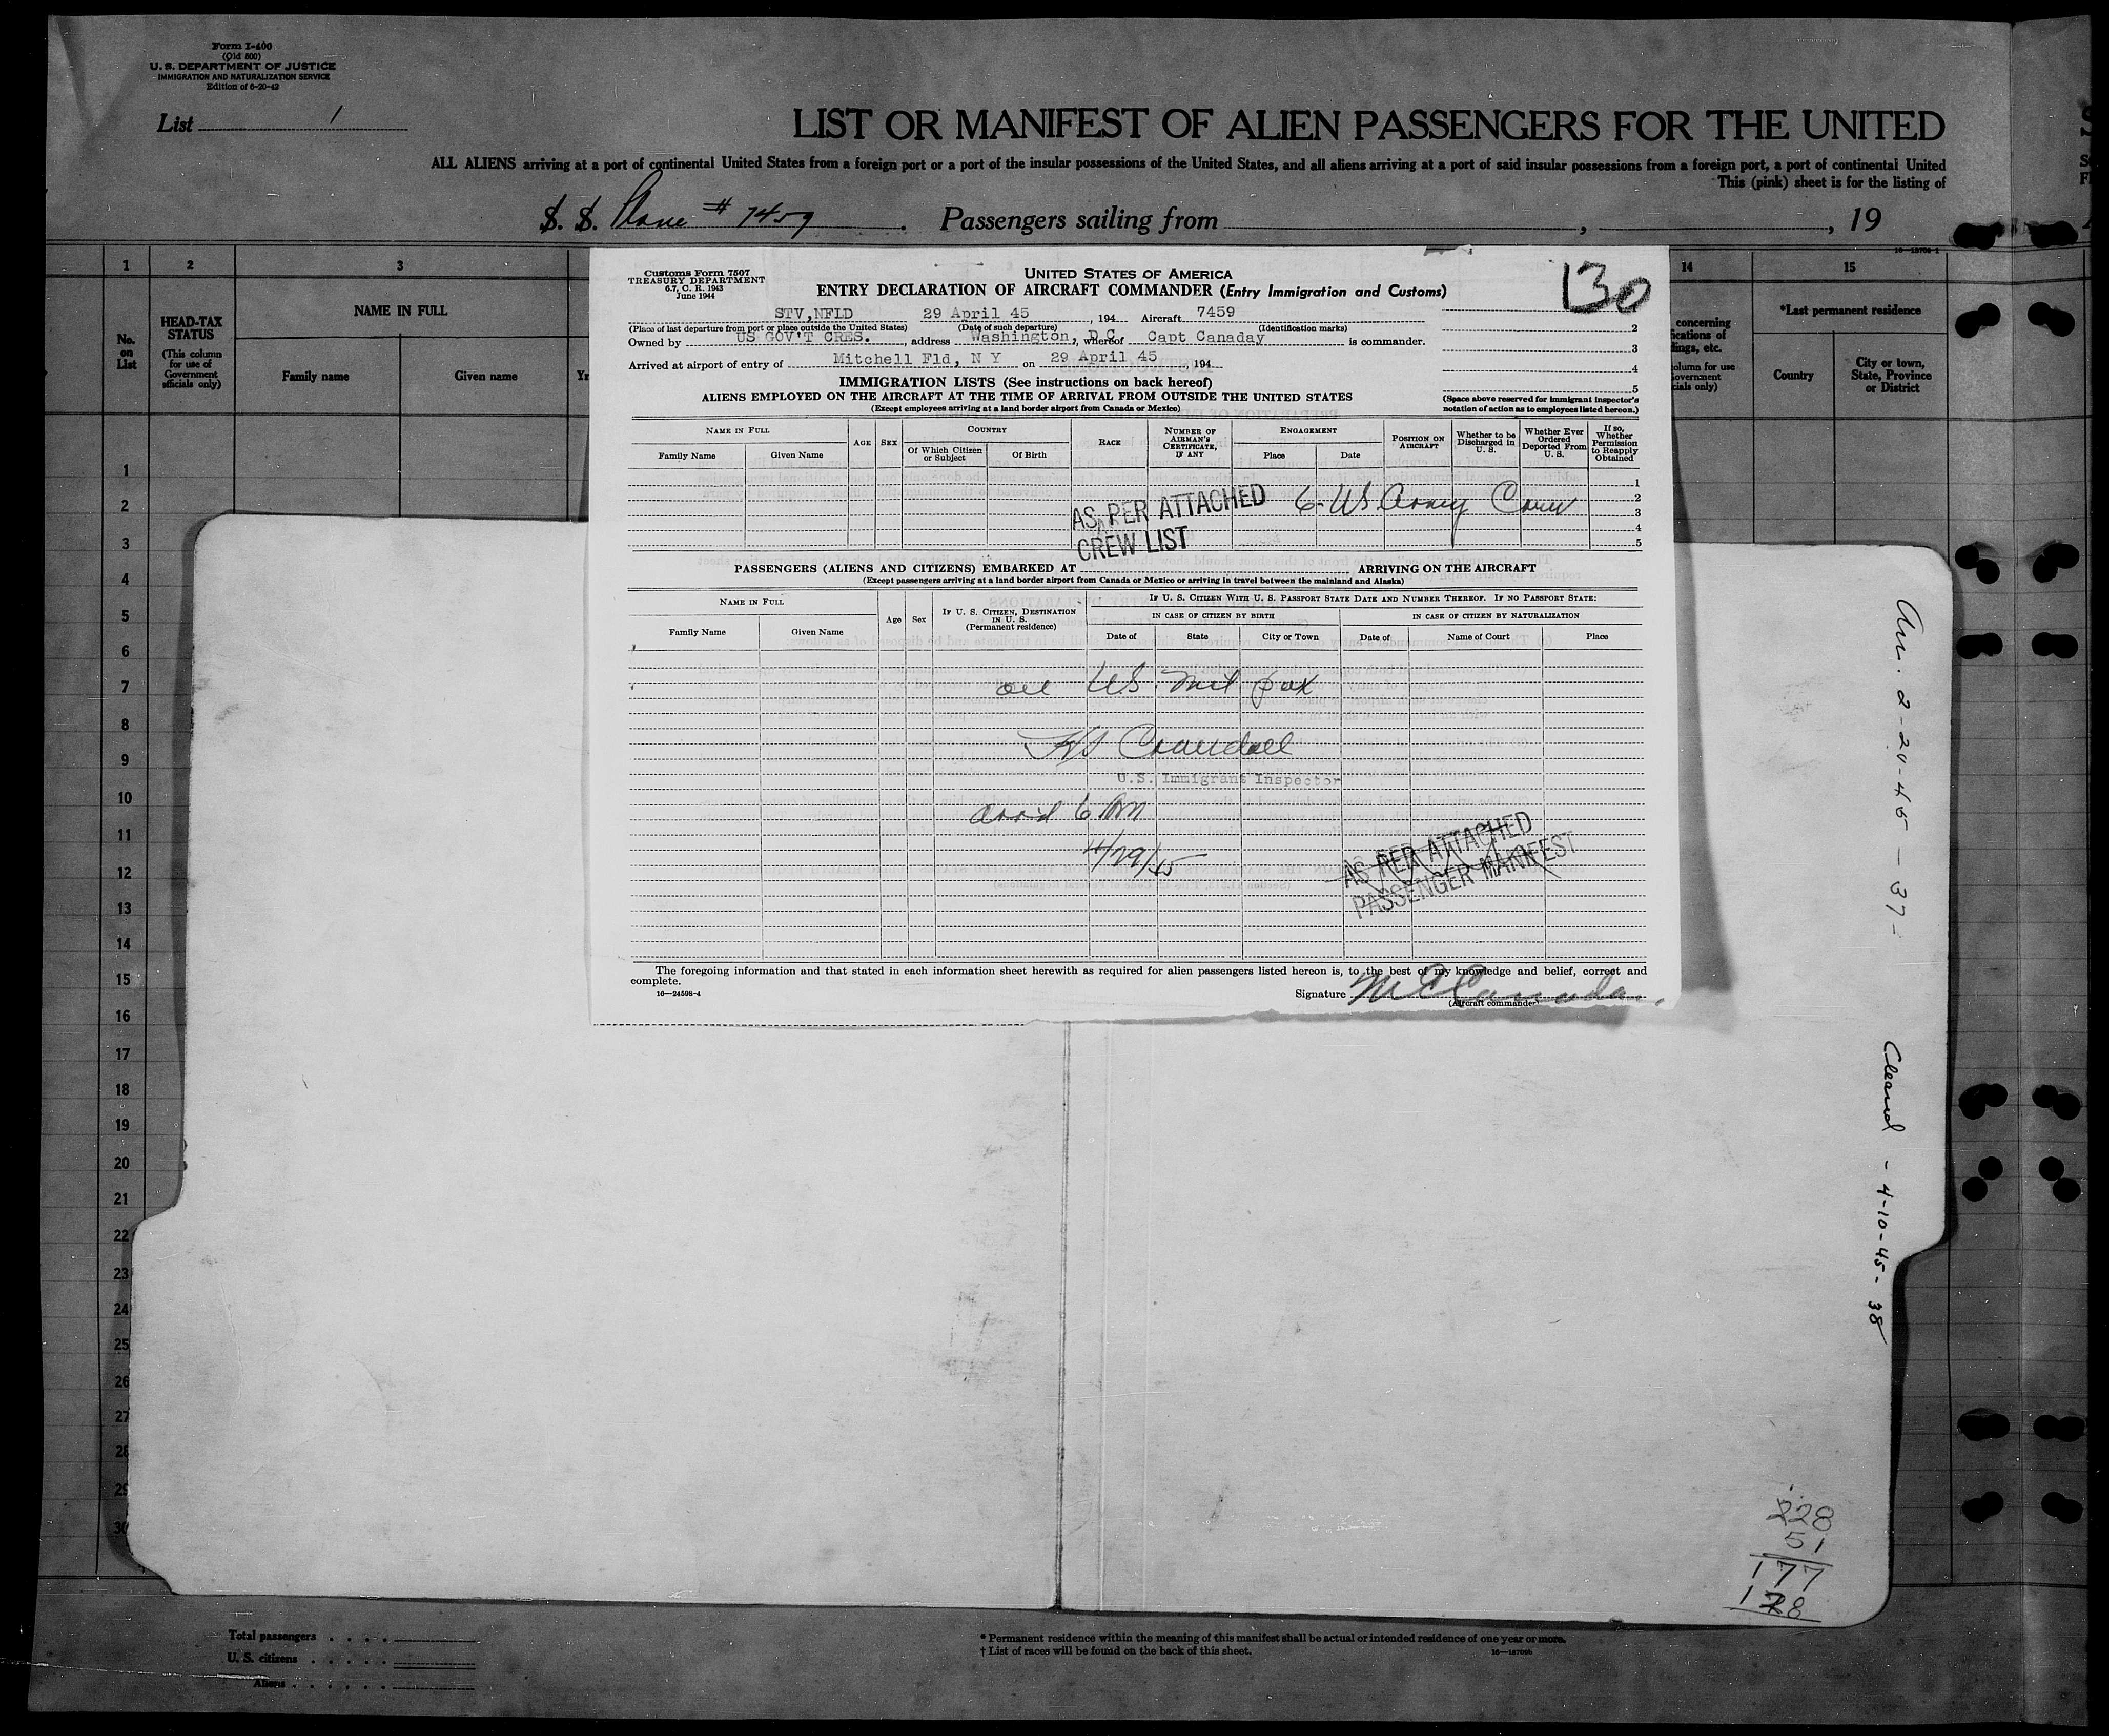 Form I-400
(Old 500)
U. S. DEPARTMENT OF JUSTICE
IMMIGRATION AND NATURALIZATION SERVICE
Edition of 6-20-42
List 1
LIST OR MANIFEST OF ALIEN PASSENGERS FOR THE UNITED
ALL ALIENS arriving at a port of continental United States from a foreign port or a port of the insular possessions of the United States, and all aliens arriving at a port of said insular possessions from a foreign port, a port of continental United
This (pink) sheet is for the listing of
S. S. Plane # 7459 . Passengers sailing from , , 19
1 2 3 14 15
No. on List
HEAD-TAX STATUS
(This column for use of Government officials only)
NAME IN FULL
Family name Given name Yr
concerning
*Last permanent residence
Country
City or town, State, Province or District
Customs Form 7507
TREASURY DEPARTMENT
6.7, C. R. 1943
June 1944
UNITED STATES OF AMERICA
ENTRY DECLARATION OF AIRCRAFT COMMANDER (Entry Immigration and Customs)
130
STV,NFLD 29 April 45 , 194 Aircraft 7459
(Place of last departure from port or place outside the United States) (Date of such departure) (Identification marks)
Owned by US GOV'T CRES. , address Washington, D.C. , whereof Capt Canaday is commander.
Arrived at airport of entry of Mitchell Fld, N Y on 29 April 45 194
2
3
4
5
IMMIGRATION LISTS (See instructions on back hereof)
ALIENS EMPLOYED ON THE AIRCRAFT AT THE TIME OF ARRIVAL FROM OUTSIDE THE UNITED STATES
(Except employees arriving at a land border airport from Canada or Mexico)
(Space above reserved for immigrant inspector's
notation of action as to employees listed hereon.)
NAME IN FULL
Family Name Given Name
AGE SEX
COUNTRY
Of Which Citizen or Subject Of Birth
RACE
NUMBER OF AIRMAN'S CERTIFICATE, IF ANY
ENGAGEMENT
Place Date
POSITION ON AIRCRAFT
Whether to be Discharged in U. S.
Whether Ever Ordered Deported From U. S.
If so, Whether Permission to Reapply Obtained
1
2
3
4
5
AS PER ATTACHED
CREW LIST
6- US Army Crew
PASSENGERS (ALIENS AND CITIZENS) EMBARKED AT ARRIVING ON THE AIRCRAFT
(Except passengers arriving at a land border airport from Canada or Mexico or arriving in travel between the mainland and Alaska)
NAME IN FULL
Family Name Given Name
Age Sex
IF U. S. CITIZEN, DESTINATION IN U. S.
(Permanent residence)
IF U. S. CITIZEN WITH U. S. PASSPORT STATE DATE AND NUMBER THEREOF. IF NO PASSPORT STATE:
IN CASE OF CITIZEN BY BIRTH IN CASE OF CITIZEN BY NATURALIZATION
Date of State City or Town Date of Name of Court Place
all US. Mil pax
Crandall
U.S. Immigrant Inspector
arrid 6 AM
4/29/45
AS PER ATTACHED
PASSENGER MANIFEST
The foregoing information and that stated in each information sheet herewith as required for alien passengers listed hereon is, to the best of my knowledge and belief, correct and
complete.
16—24598-4
Signature M C Canaday
(Aircraft commander)
1
2
3
4
5
6
7
8
9
10
11
12
13
14
15
16
17
18
19
20
21
22
23
24
25
26
27
28
29
30
Arr. 2-20-45 - 37-
Cleared - 4-10-45 - 38
228
51
177
128
Total passengers
U. S. citizens
Aliens
* Permanent residence within the meaning of this manifest shall be actual or intended residence of one year or more.
† List of races will be found on the back of this sheet.